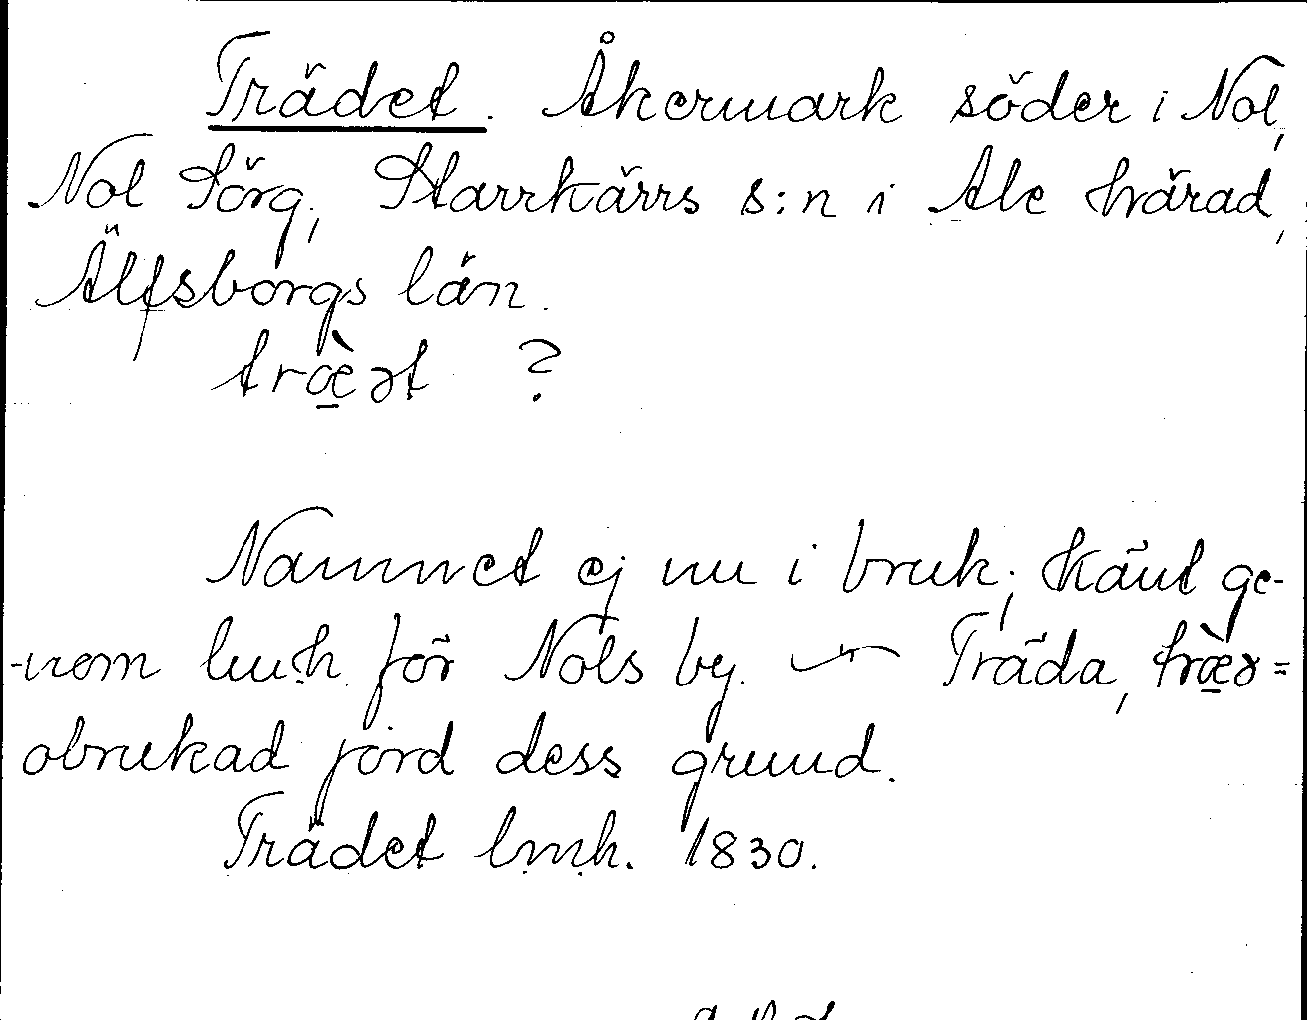 Trädet. Åkermark söder i Nol,
Nol Sörg., Starrkärrs s:n i Ale härad,
Älfsborgs län.
træ̀ət ?
Namnet ej nu i bruk; känt ge-
-nom lmh. för Nols by. — Träda, træ̀ə =
obrukad jord dess grund.
Trädet lmh. 1830.